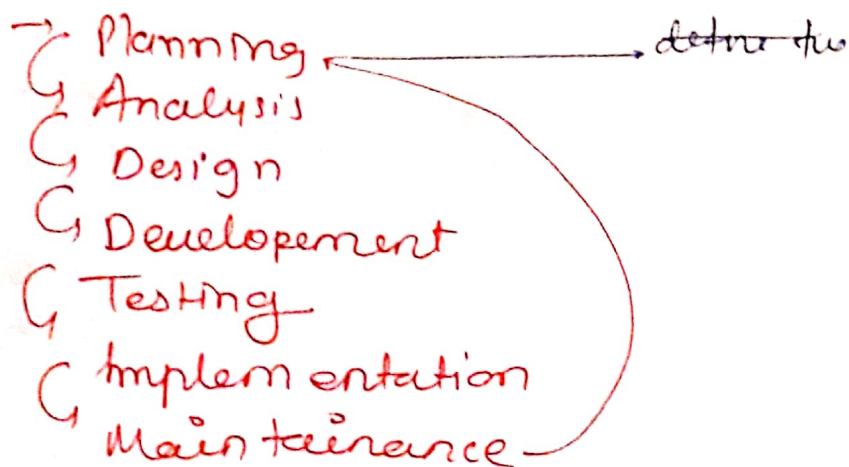 → Planning
Analysis
Design
Developement
Testing
Implementation
Maintainance